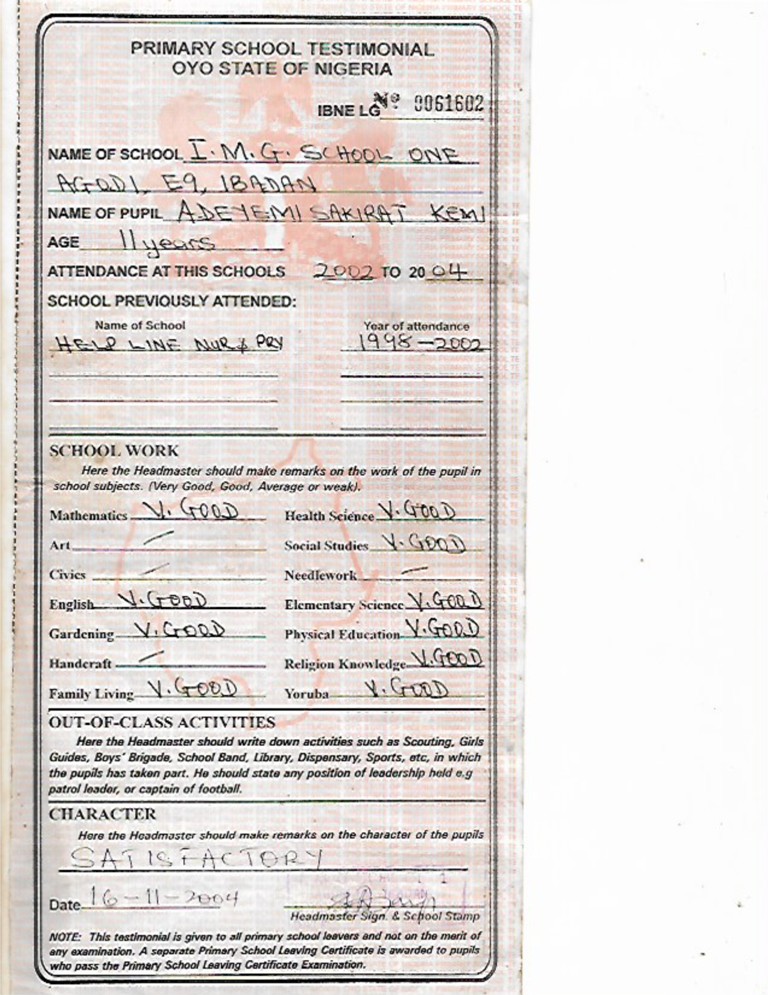 PRIMARY SCHOOL TESTIMONIAL
OYO STATE OF NIGERIA
IBNE LG Nº 0061602
NAME OF SCHOOL I.M.G. SCHOOL ONE
AGODI, E9, IBADAN
NAME OF PUPIL ADEYEMI SAKIRAT KEMI
AGE 11 years
ATTENDANCE AT THIS SCHOOLS 2002 TO 2004
SCHOOL PREVIOUSLY ATTENDED:
Name of School Year of attendance
HELP LINE NUR & PRY 1998-2002
SCHOOL WORK
Here the Headmaster should make remarks on the work of the pupil in
school subjects. (Very Good, Good, Average or weak).
Mathematics V. GOOD Health Science V. GOOD
Art — Social Studies V. GOOD
Civics — Needlework —
English V. GOOD Elementary Science V. GOOD
Gardening V. GOOD Physical Education V. GOOD
Handcraft — Religion Knowledge V. GOOD
Family Living V. GOOD Yoruba V. GOOD
OUT-OF-CLASS ACTIVITIES
Here the Headmaster should write down activities such as Scouting, Girls
Guides, Boys' Brigade, School Band, Library, Dispensary, Sports, etc, in which
the pupils has taken part. He should state any position of leadership held e.g
patrol leader, or captain of football.
CHARACTER
Here the Headmaster should make remarks on the character of the pupils
SATISFACTORY
Date 16-11-2004
Headmaster Sign. & School Stamp
NOTE: This testimonial is given to all primary school leavers and not on the merit of
any examination. A separate Primary School Leaving Certificate is awarded to pupils
who pass the Primary School Leaving Certificate Examination.